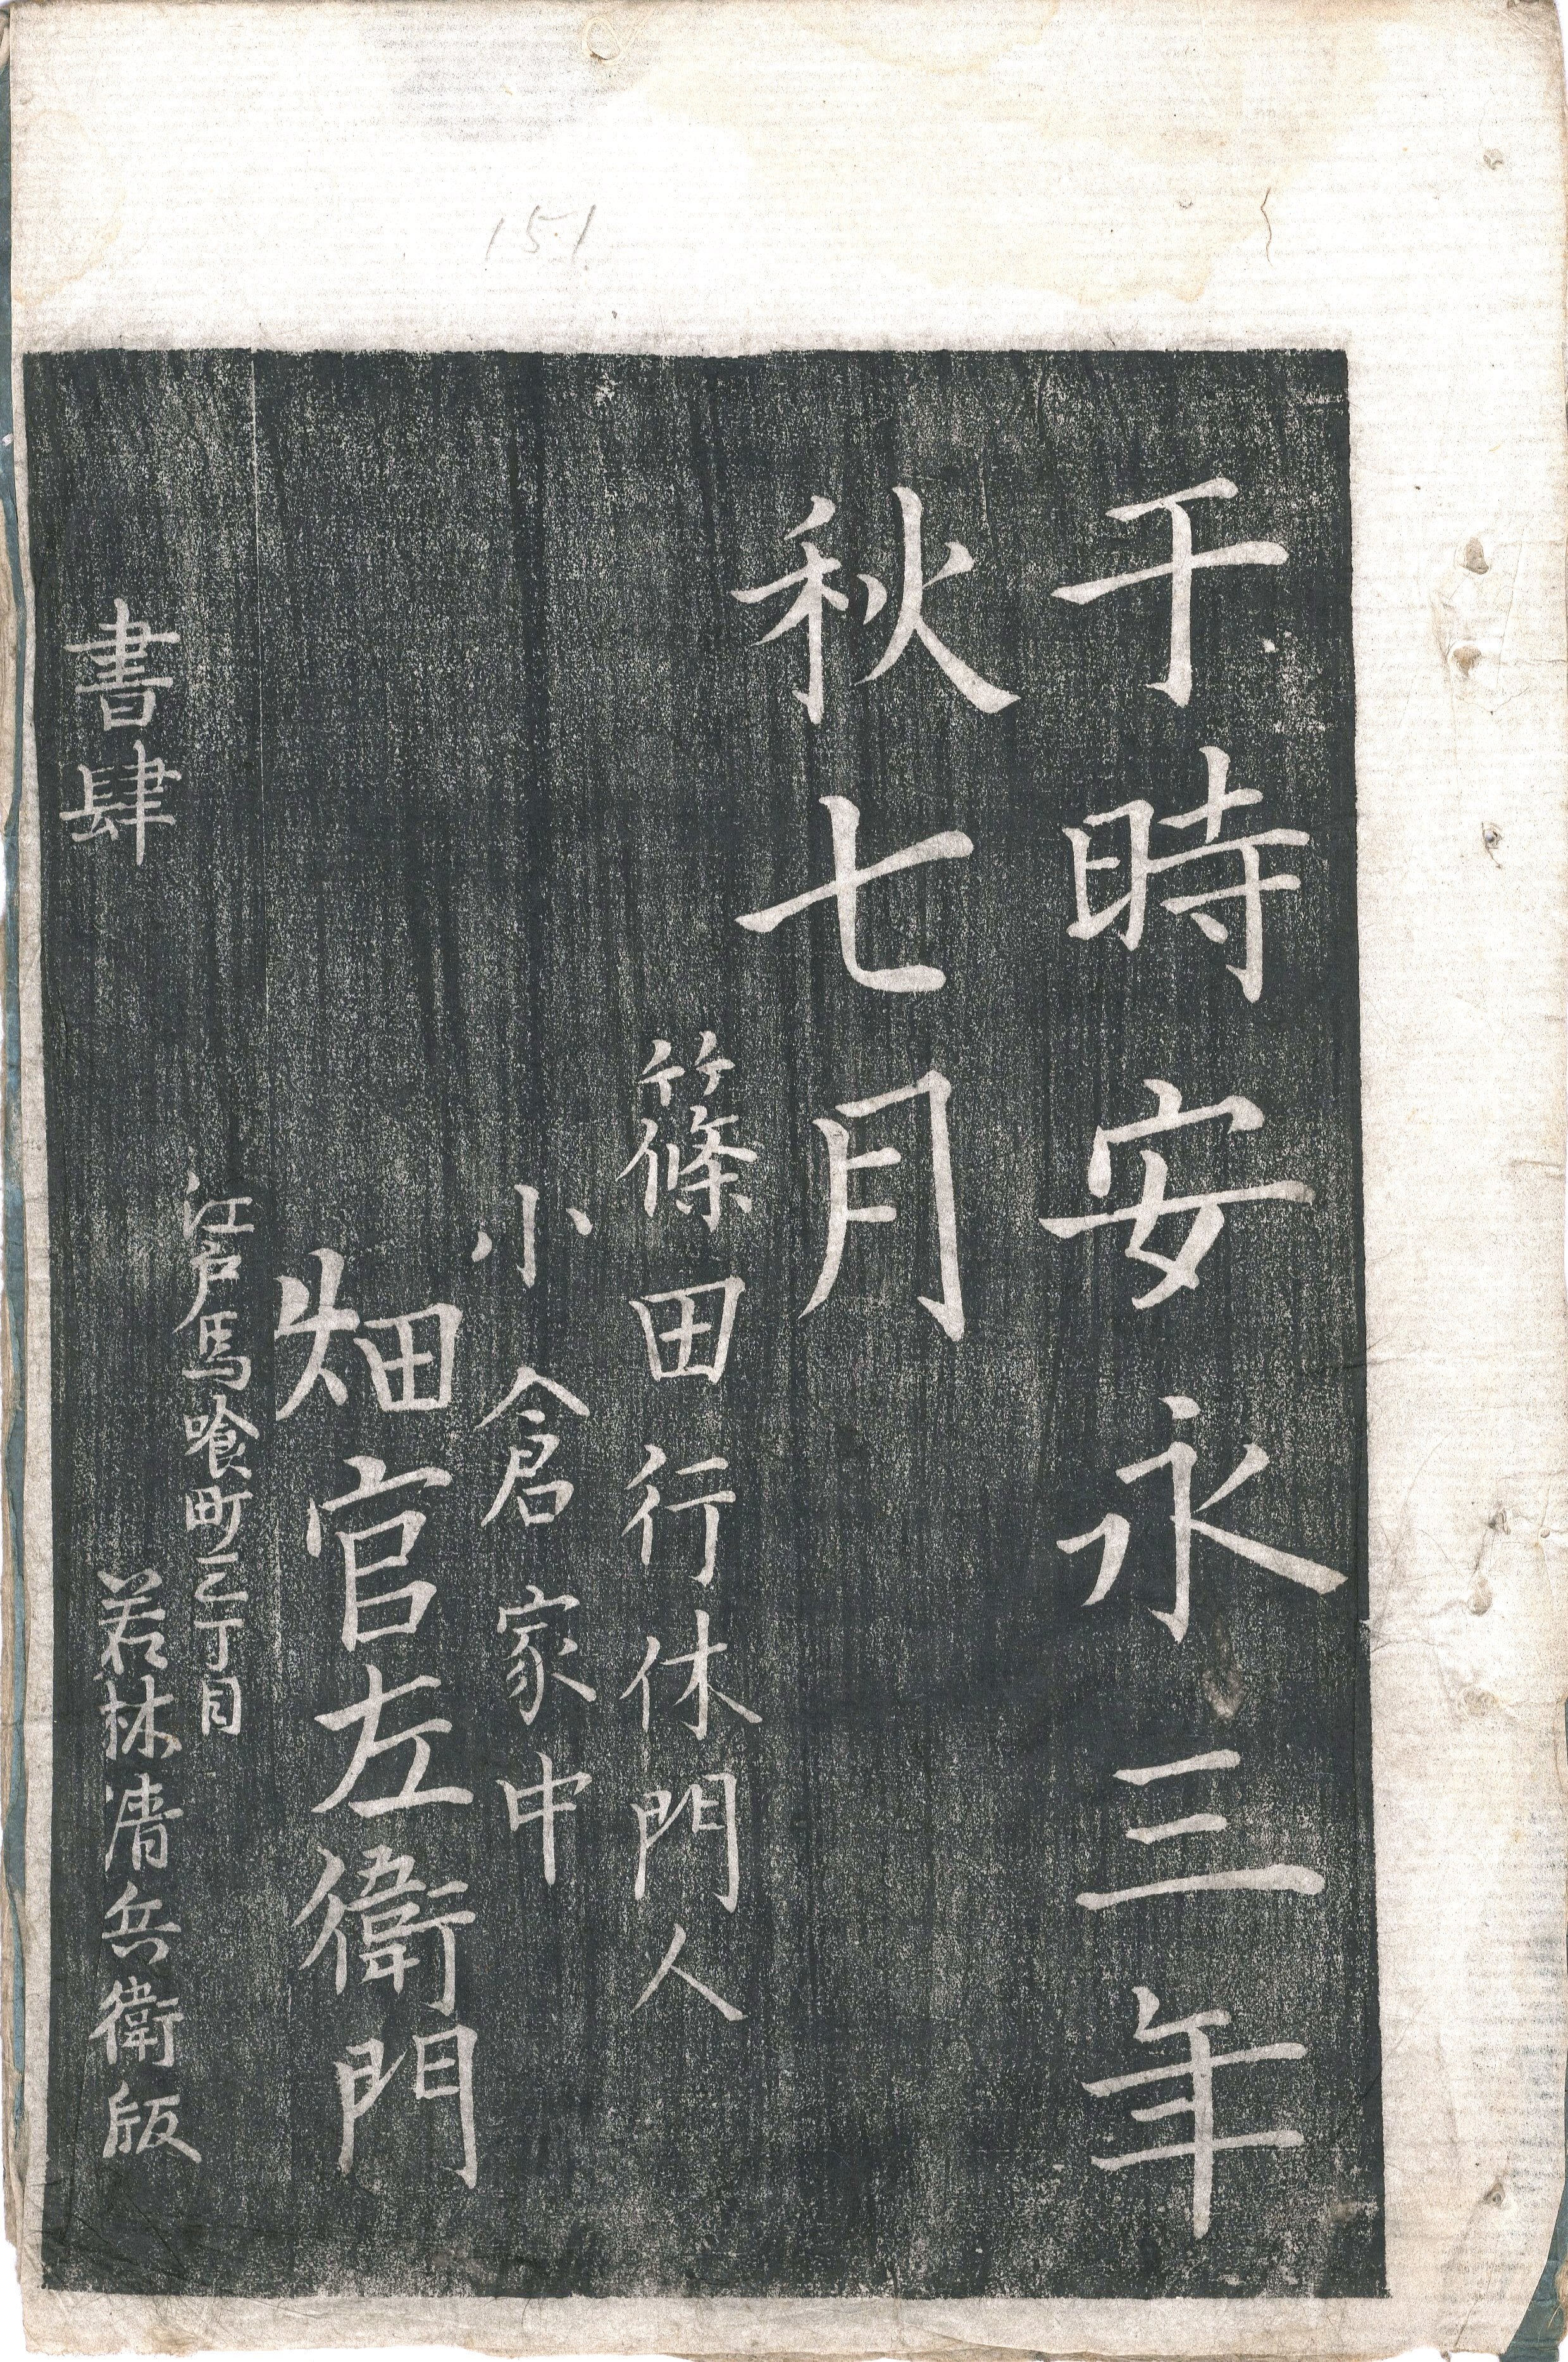 151
于時安永三年
秋七月
篠田行休門人
小倉家中
畑官左衛門
書肆
江戸馬喰町二丁目
若林清兵衛版